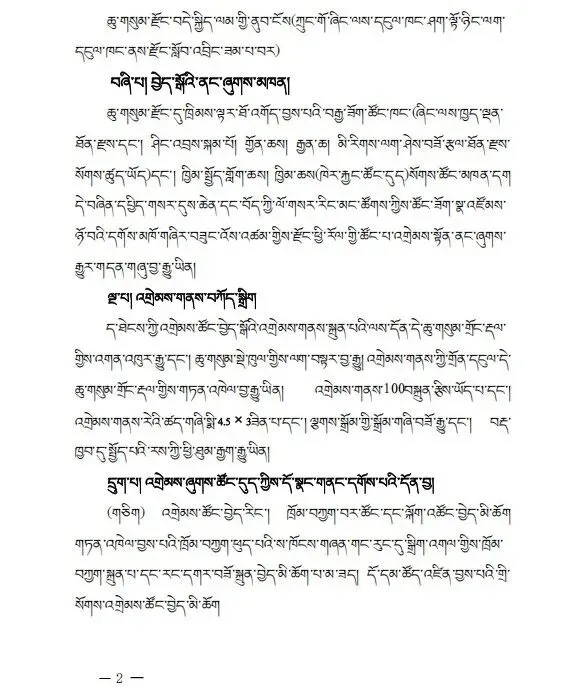 ཆུ་གསུམ་རྫོང་བདེ་སྐྱིད་ལམ་གྱི་ནུབ་ངོས(ཀྲུང་གོ་ཞིང་ལས་དངུལ་ཁང་ཤག་ལྟོ་ཉིང་ལག་
དངུལ་ཁང་ནས་རྫོང་སློབ་འབྲིང་ཟམ་པ་བར)
བཞི་པ། བྱེད་སྒོའི་ནང་ཞུགས་མཁན།
ཆུ་གསུམ་རྫོང་དུ་ཁྲིམས་ལྟར་ཐོ་འགོད་བྱས་པའི་བརྒྱ་ཟོག་ཚོང་ཁང་(ཞིང་ལས་ཁྱད་ལྡན་
ཐོན་རྫས་དང་། ཤིང་འབྲས་སྐམ་པོ། གྱོན་ཆས། རྒྱན་ཆ། མི་རིགས་ལག་ཤེས་བཟོ་རྩལ་ཐོན་རྫས་
སོགས་ཚུད་ཡོད)དང་། ཁྱིམ་སྤྱོད་གློག་ཆས། ཁྱིམ་ཆས(ཁེར་རྐྱང་ཚོང་དུད)སོགས་ཚོང་མཁན་དག
དེ་བཞིན་དཔྱིད་གསར་དུས་ཆེན་དང་བོད་ཀྱི་ལོ་གསར་རིང་མང་ཚོགས་ཀྱིས་ཚོང་ཟོག་སྣ་འཛོམས་
ཉོ་བའི་དགོས་མཁོ་གཞིར་བཟུང་འོས་འཚམ་གྱིས་རྫོང་ཕྱི་རོལ་གྱི་ཚོང་པ་འགྲེམས་སྟོན་ནང་ཞུགས་
རྒྱུར་གདན་གཞུ་བྱ་རྒྱུ་ཡིན།
ལྔ་པ། འགྲེམས་གནས་བཀོད་སྒྲིག
ད་ཐེངས་ཀྱི་འགྲེམས་ཚོང་བྱེད་སྒོའི་འགྲེམས་གནས་སྐྲུན་པའི་ལས་དོན་དེ་ཆུ་གསུམ་གྲོང་རྡལ་
གྱིས་འགན་འཁུར་རྒྱུ་དང་། ཆུ་གསུམ་སྡེ་ཁུལ་གྱིས་ལག་བསྟར་བྱ་རྒྱུ། འགྲེམས་གནས་ཀྱི་གྲོན་དངུལ་དེ་
ཆུ་གསུམ་གྲོང་རྡལ་གྱིས་གཏན་འཁེལ་བྱ་རྒྱུ་ཡིན། འགྲེམས་གནས་100བསྐྲུན་རྩིས་ཡོད་པ་དང་།
འགྲེམས་གནས་རེའི་ཚད་གཞི་སྨི་4.5 × 3ཟིན་པ་དང་། ལྕགས་སྒྲོམ་གྱི་སྒྲོམ་གཞི་བཟོ་རྒྱུ་དང་། བརྡ་
ཁྱབ་ཏུ་སྤྱོད་པའི་རས་ཀྱི་ཕྱི་ཐུམ་རྒྱག་རྒྱུ་ཡིན།
དྲུག་པ། འགྲེམས་ཞུགས་ཚོང་དུད་ཀྱིས་དོ་སྣང་གནང་དགོས་པའི་དོན་བྱ།
(གཅིག) འགྲེམས་ཚོང་བྱེད་རིང་། ཁྲོམ་བཀྱག་བར་ཚོང་དང་ལྐོག་འཚོང་བྱེད་མི་ཆོག
གཏན་འཁེལ་བྱས་པའི་ཁྲོམ་བཀྱག་ཕུད་པའི་ས་ཁོངས་གཞན་གང་རུང་དུ་སྒྲིག་འགལ་གྱིས་ཁྲོམ་
བཀྱག་སྐྲུན་པ་དང་རང་དགར་བཟོ་སྐྲུན་བྱེད་མི་ཆོག་པ་མ་ཟད། དོ་དམ་ཚོད་འཛིན་བྱས་པའི་གྲི་
སོགས་འགྲེམས་ཚོང་བྱེད་མི་ཆོག
— 2 —